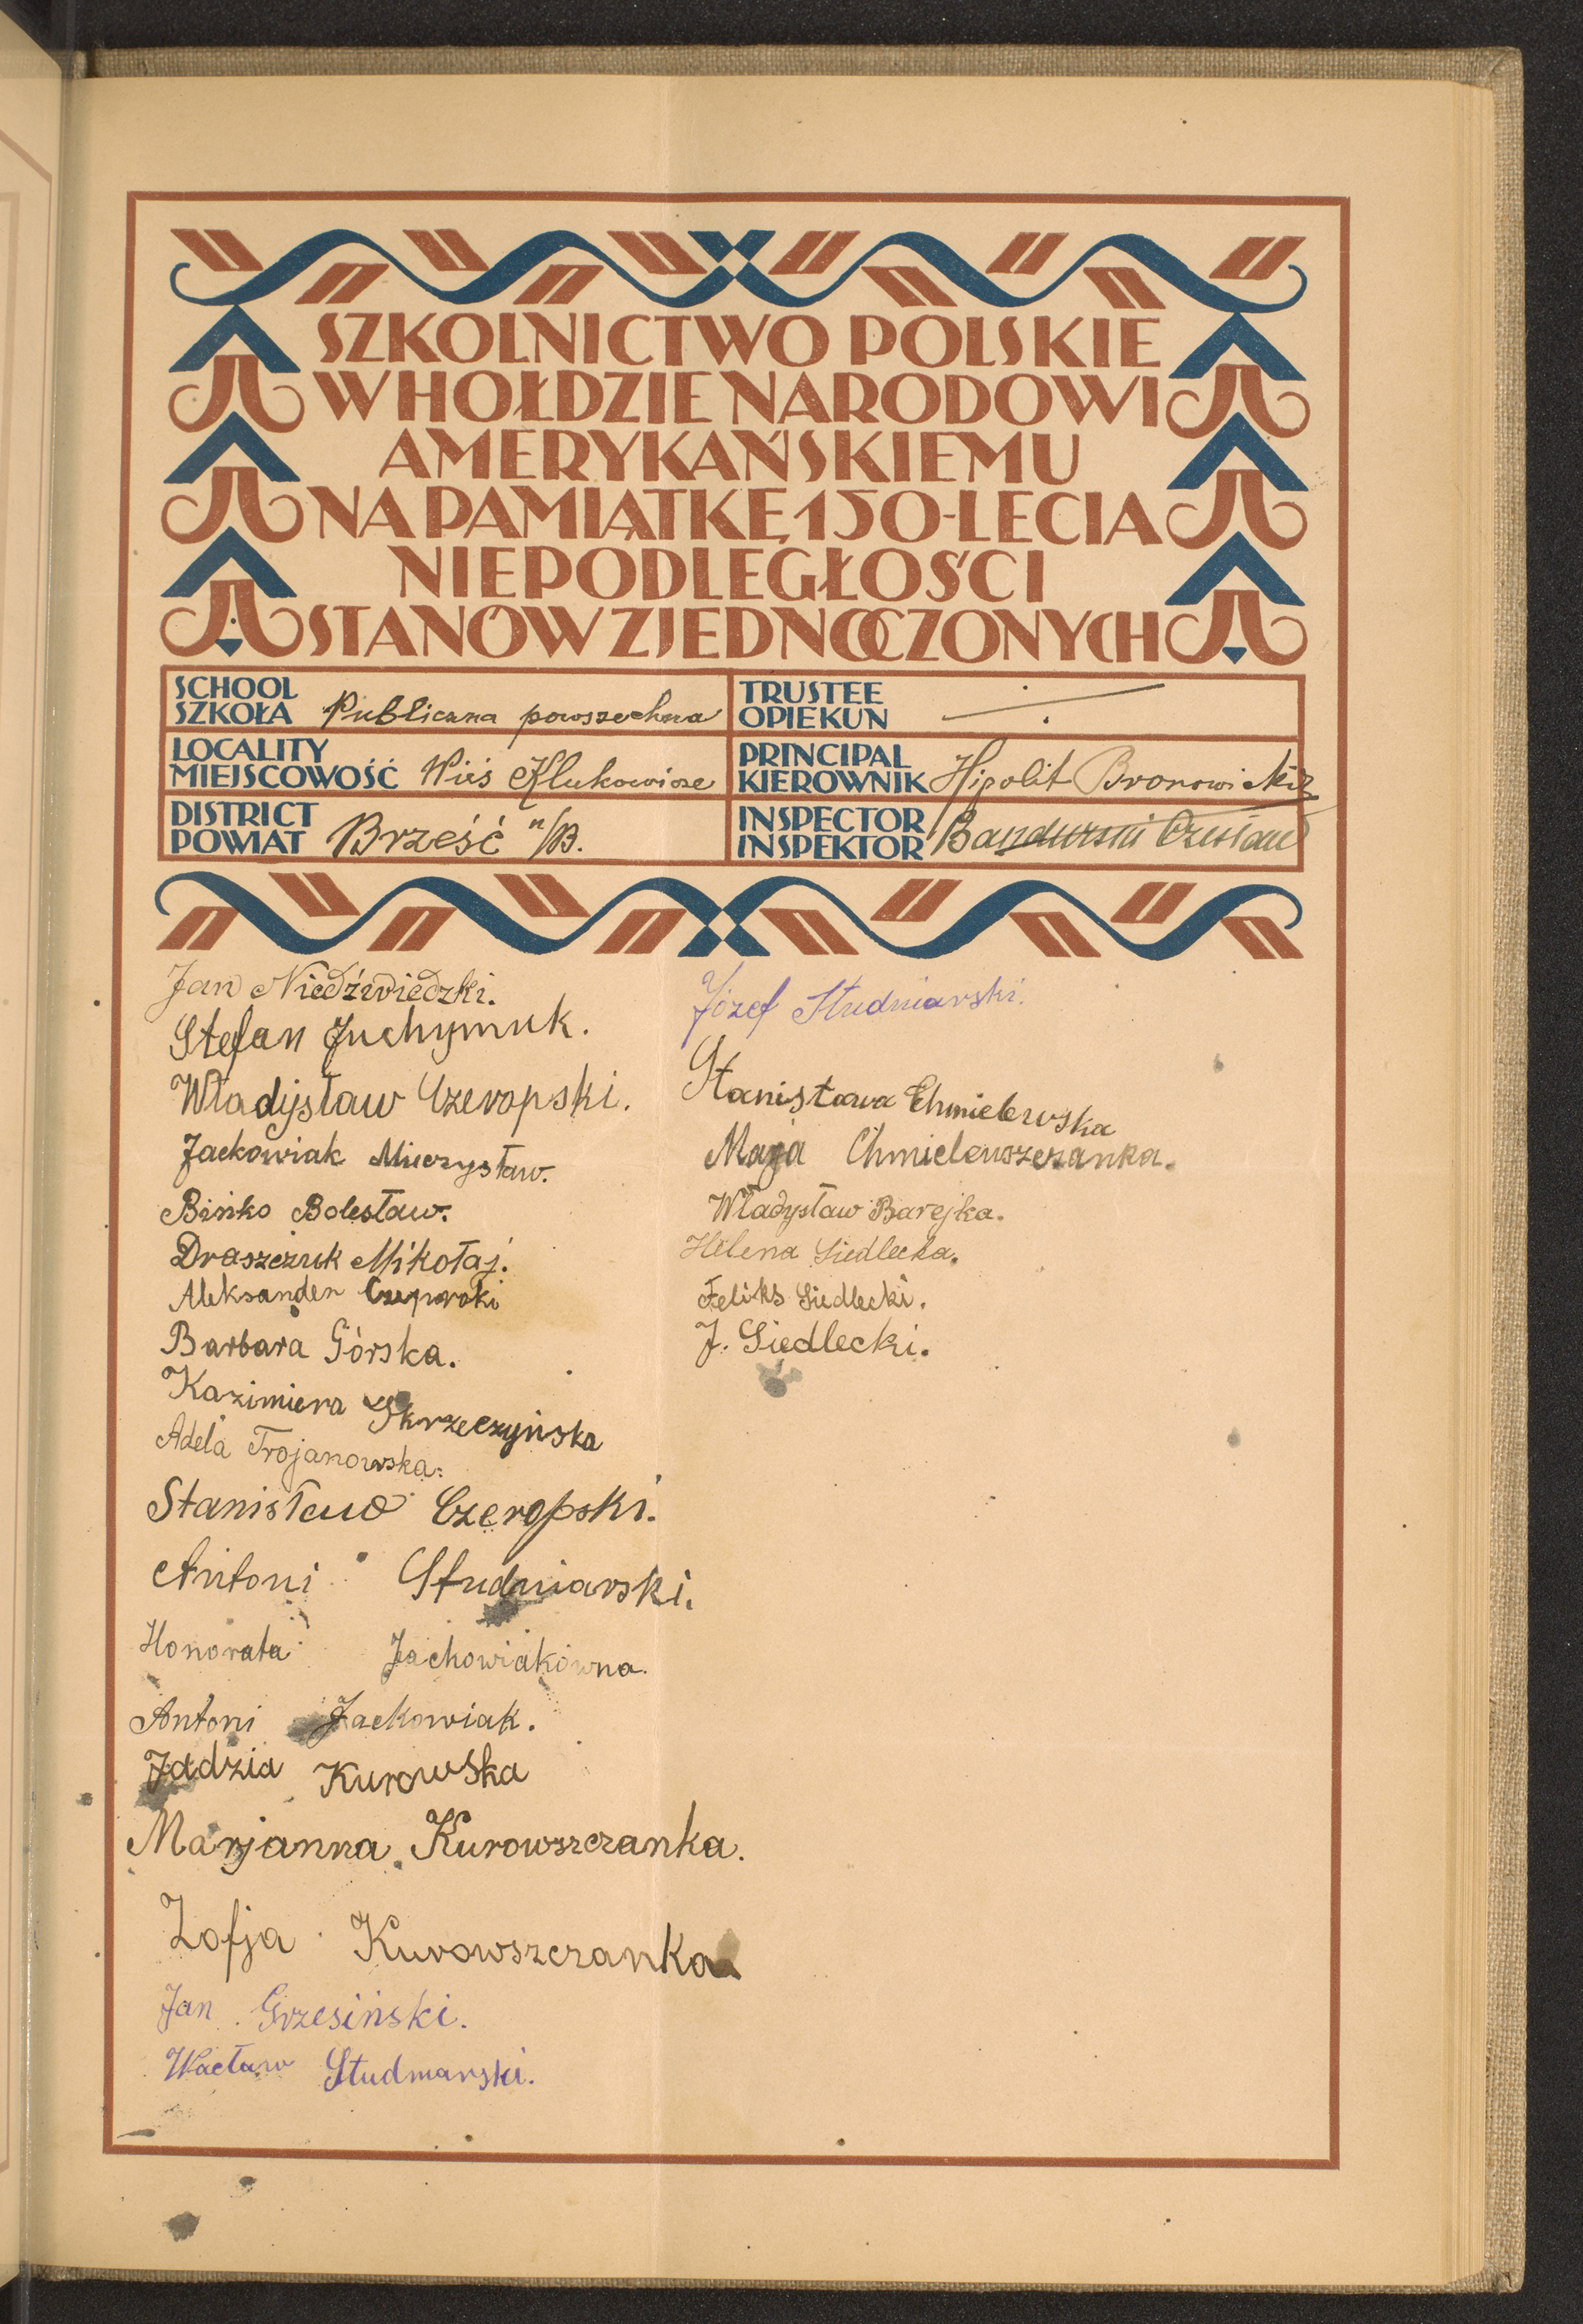 SZKOLNICTWO POLSKIE
W HOŁDZIE NARODOWI
AMERYKAŃSKIEMU
NA PAMIĄTKĘ 150-LECIA
NIEPODLEGŁOŚCI
STANÓW ZJEDNOCZONYCH
SCHOOL
SZKOŁA Publiczna powszechna
TRUSTEE
OPIEKUN
LOCALITY
MIEJSCOWOŚĆ Wieś Klukowicze
PRINCIPAL
KIEROWNIK Hipolit Bronowicki
DISTRICT
POWIAT Brześć n/B.
INSPECTOR
INSPEKTOR Bandurski Czesław
Jan Niedźwiedzki.
Stefan Juchymuk.
Władysław Czeropski.
Jackowiak Mieczysław.
Bińko Bolesław.
Draszczuk Mikołaj.
Aleksander
Barbara Górska.
Kazimiera Skrzeczyńska
Adela Trojanowska.
Stanisław Czeropski.
Antoni Studniarski.
Honorata Jachowiakówna.
Antoni Jackowiak.
Jadzia Kurowska
Marjanna Kurowszczanka.
Zofja Kurowszczanka
Jan Grzesiński.
Wacław Studniarski.
Józef Studniarski.
Stanisława Chmielewska
Maja Chmielewszczanka.
Władysław Barejka.
Helena Siedlecka.
Feliks Siedlecki.
J. Siedlecki.